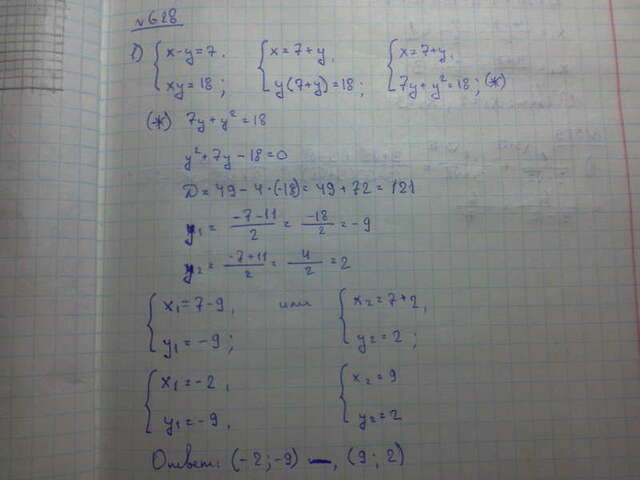 №628
1) { x-y=7, xy=18; { x=7+y, y(7+y)=18; { x=7+y, 7y+y²=18; (*)
(*) 7y+y²=18
y²+7y-18=0
D=49-4·(-18)=49+72=121
y₁ = (-7-11)/2 = -18/2 = -9
y₂ = (-7+11)/2 = 4/2 = 2
{ x₁=7-9, y₁=-9; или { x₂=7+2, y₂=2;
{ x₁=-2, y₁=-9, { x₂=9 y₂=2
Ответ: (-2;-9), (9;2)